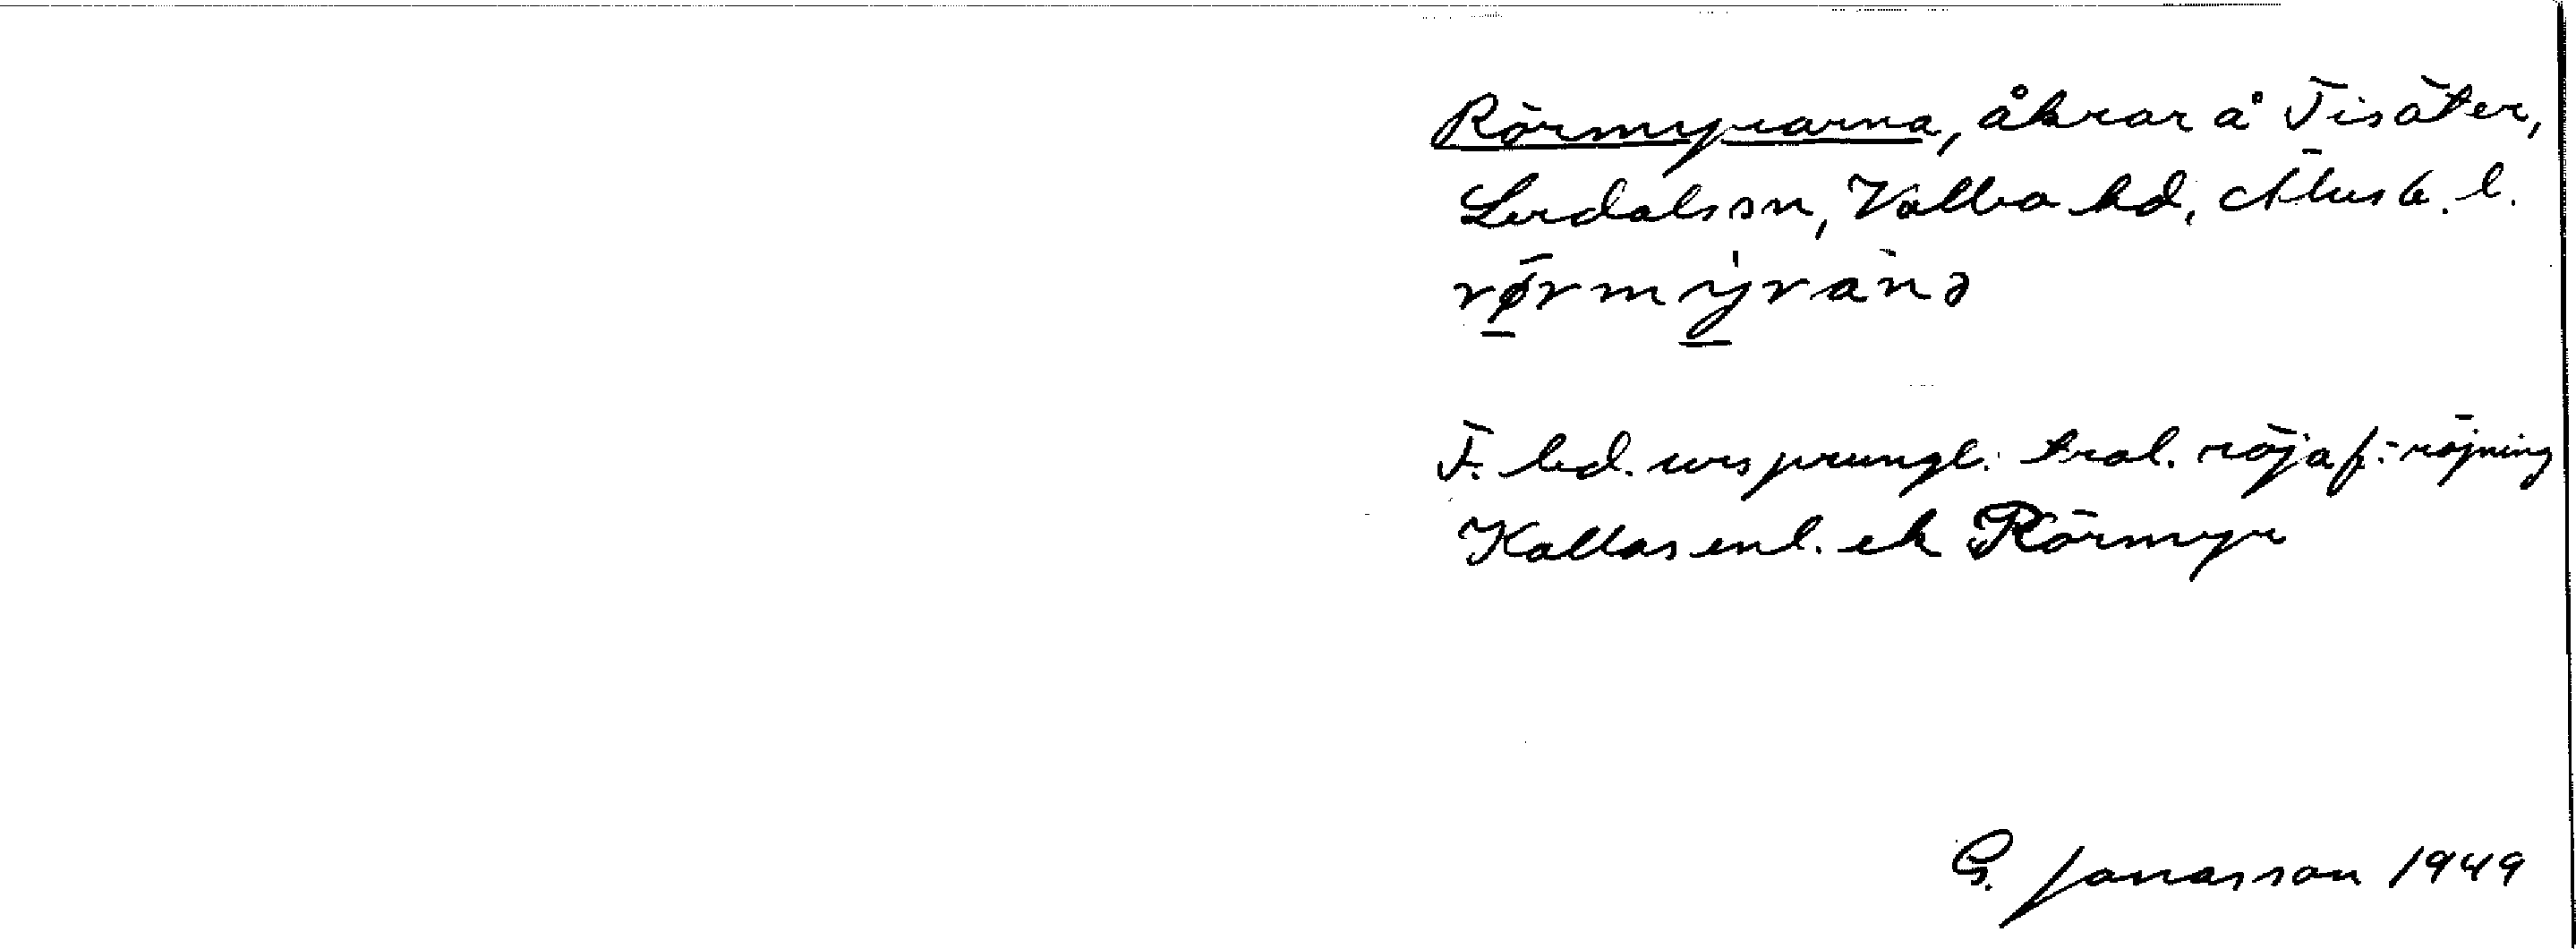 Rörmyrarna, åkrar å Tisäter,
Lerdals sn, Valbo hd, Älvsb. l.
rø̄rmy̍rànə
F. led. ursprungl. tral. röja f.: röjning
Kallas enl. ek Rörmyr
G. Jonasson 1949